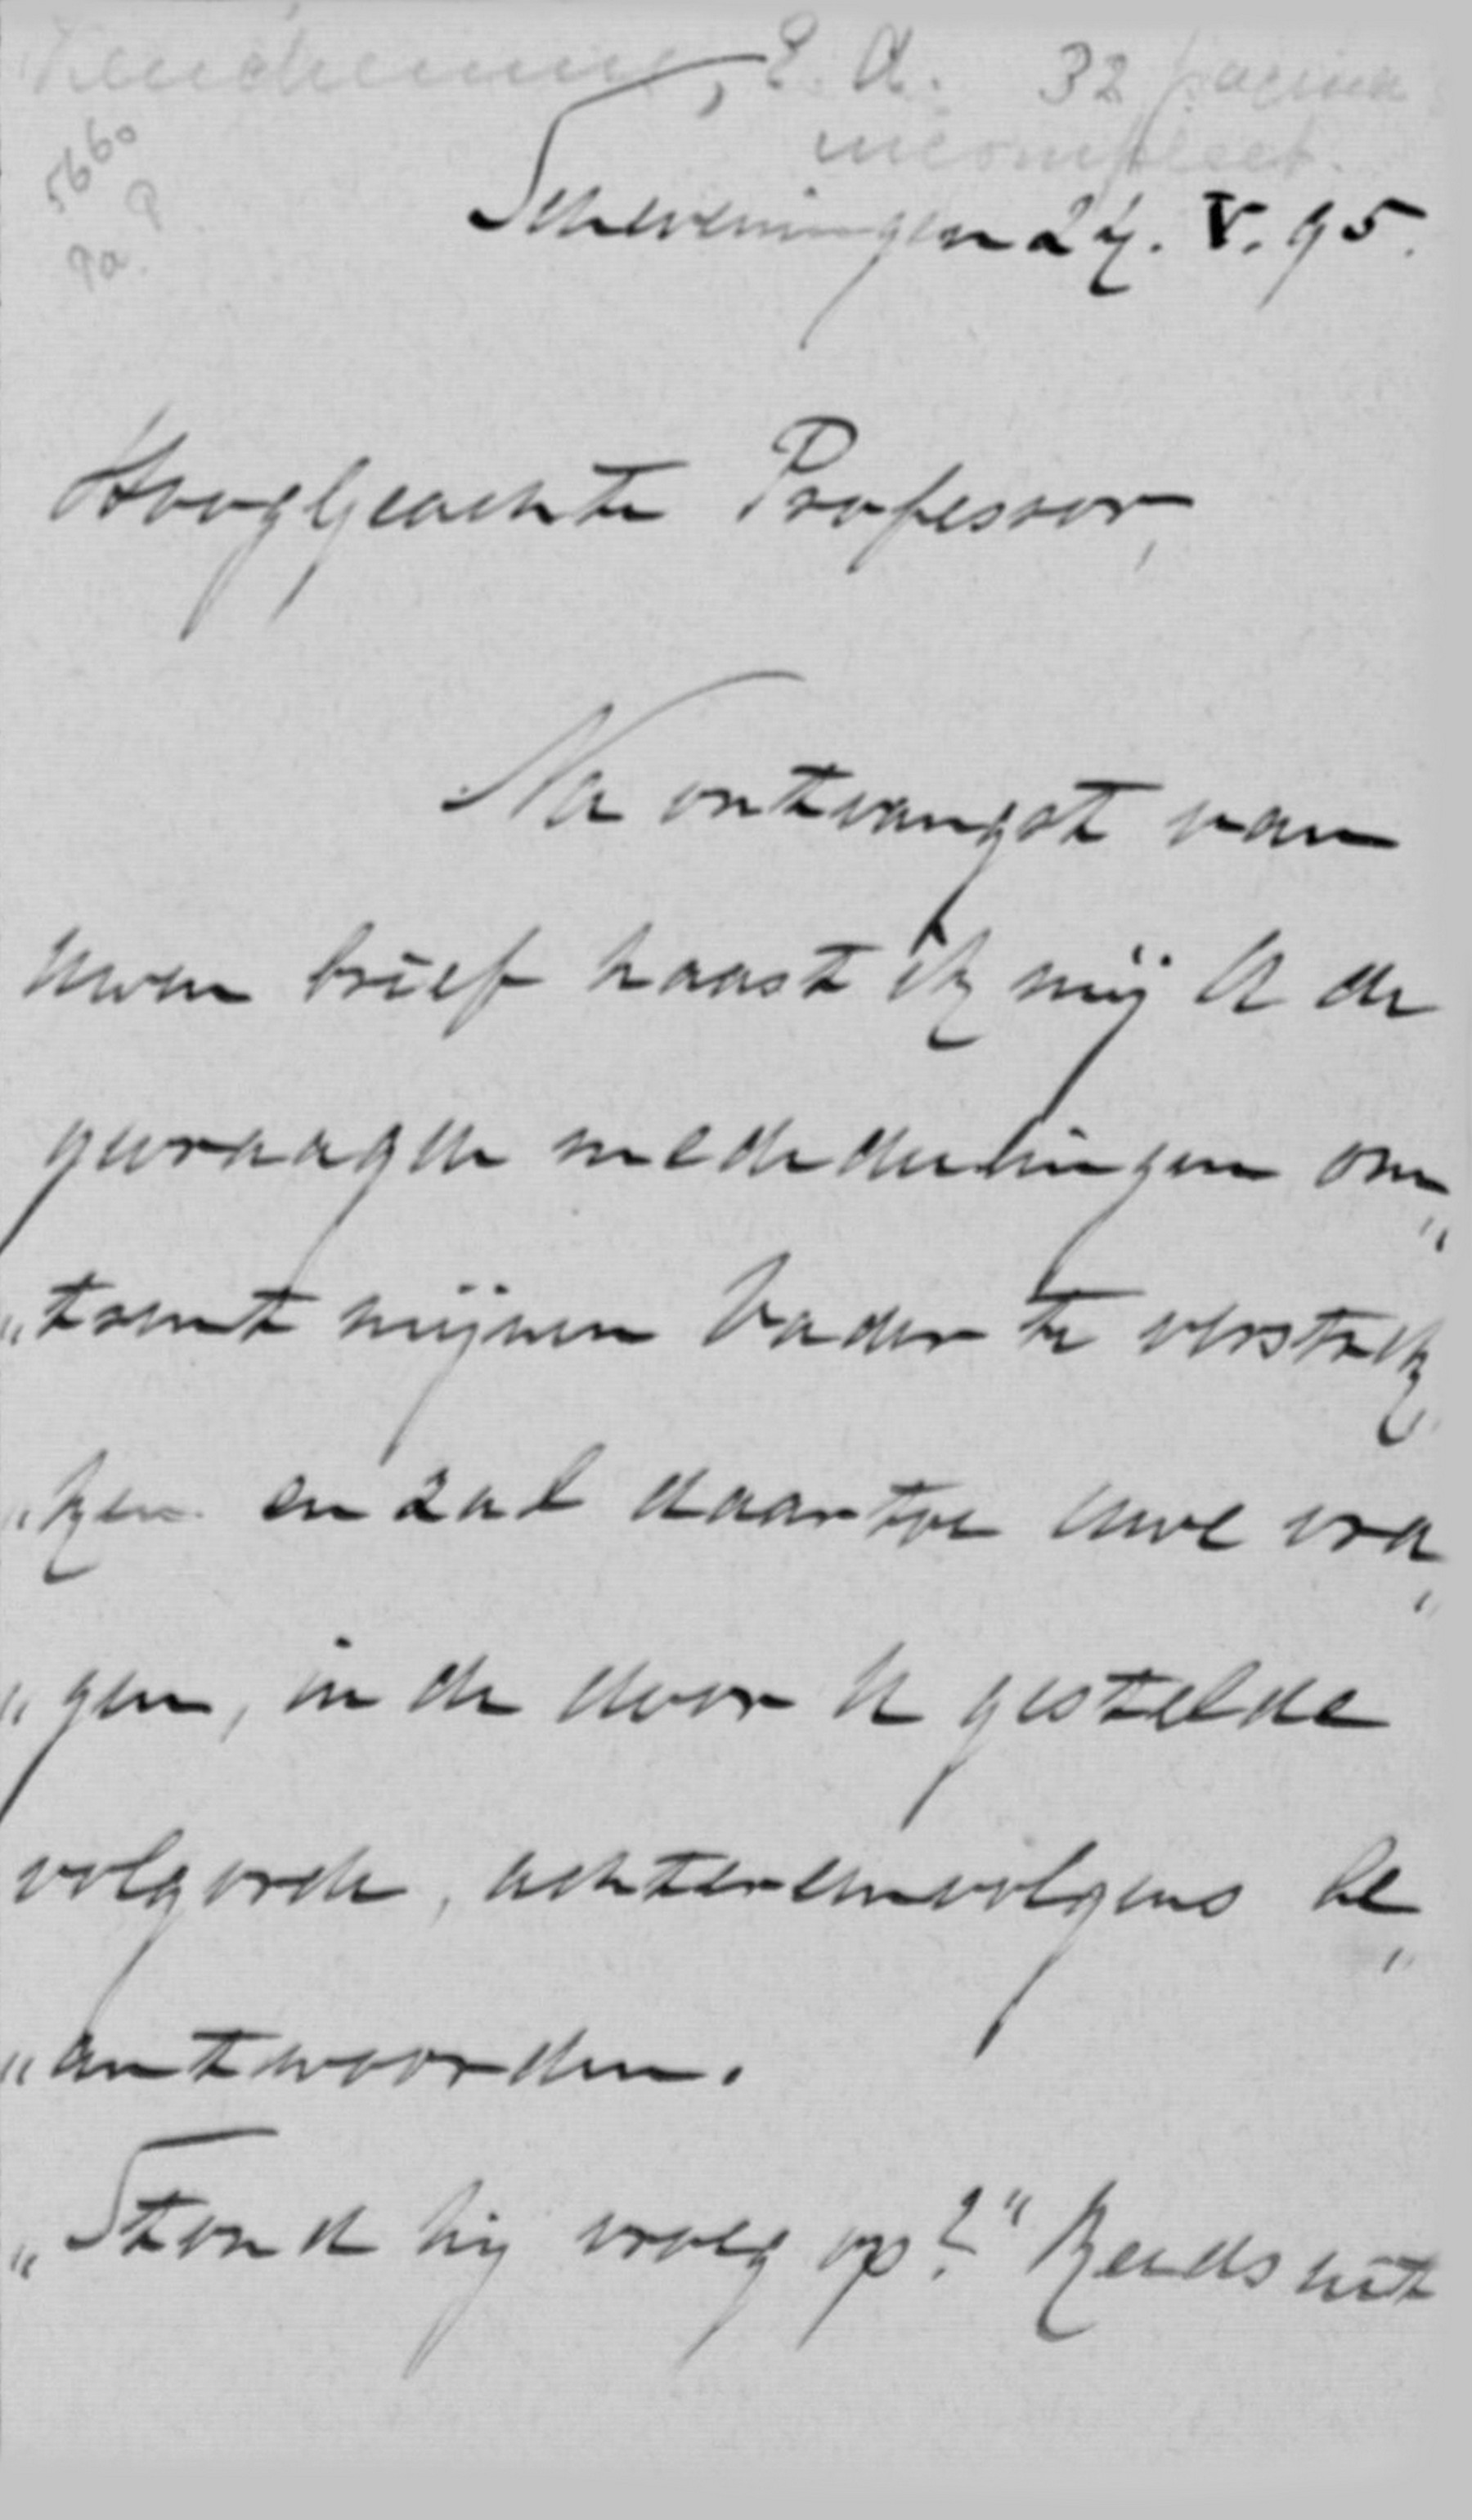 Keuchenius, E. A. 32 pagina
incompleet.
5660
9
9a.
Scheveningen 24. V. 95.
Hooggeachte Professor,
Na ontvangst van
uwen brief haast ik mij U de
gevraagde mededeelingen om„
„trent mijnen Vader te verstrek„
„ken en zal daartoe Uwe vra„
„gen, in de door U gestelde
volgorde, achtereenvolgens be„
„antwoorden.
„Stond hij vroeg op?“ Reeds uit